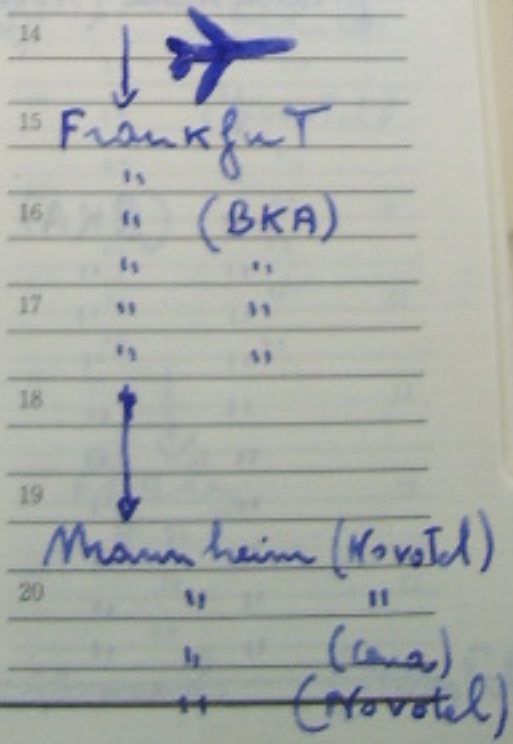 14
15 Frankfurt
"
16 " (BKA)
" "
17 " "
" "
18
19
Mannheim (Novotel)
20 " "
" (Cena)
" (Novotel)